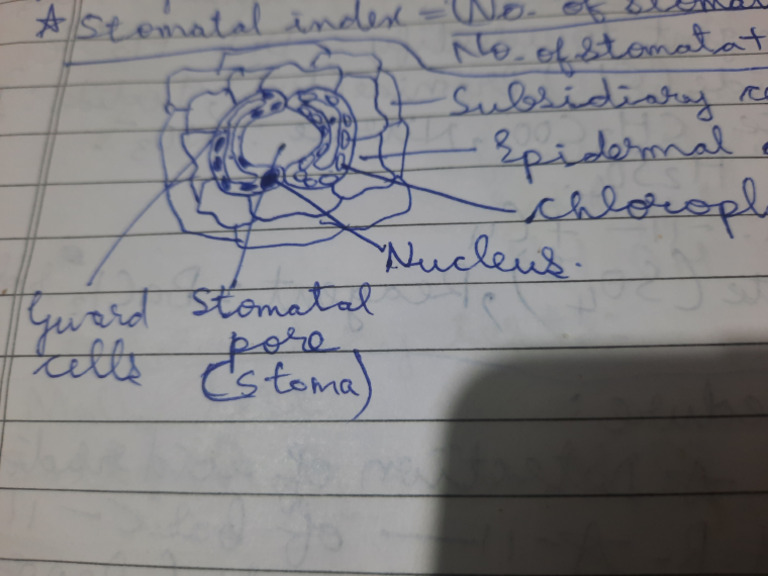 ☆ Stomatal index = No. of Stoma
No. of Stomata +
Subsidiary ce
Epidermal
Chloropl
Nucleus.
Guard cells
Stomatal pore (Stoma)